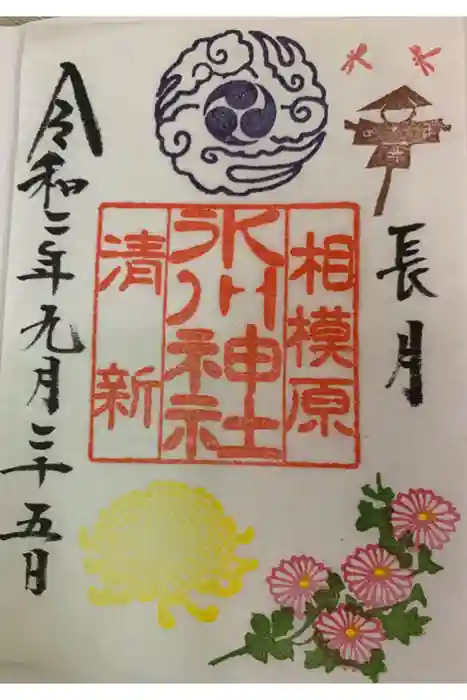 長月
相模原
氷川神社
清新
令和二年九月二十五日